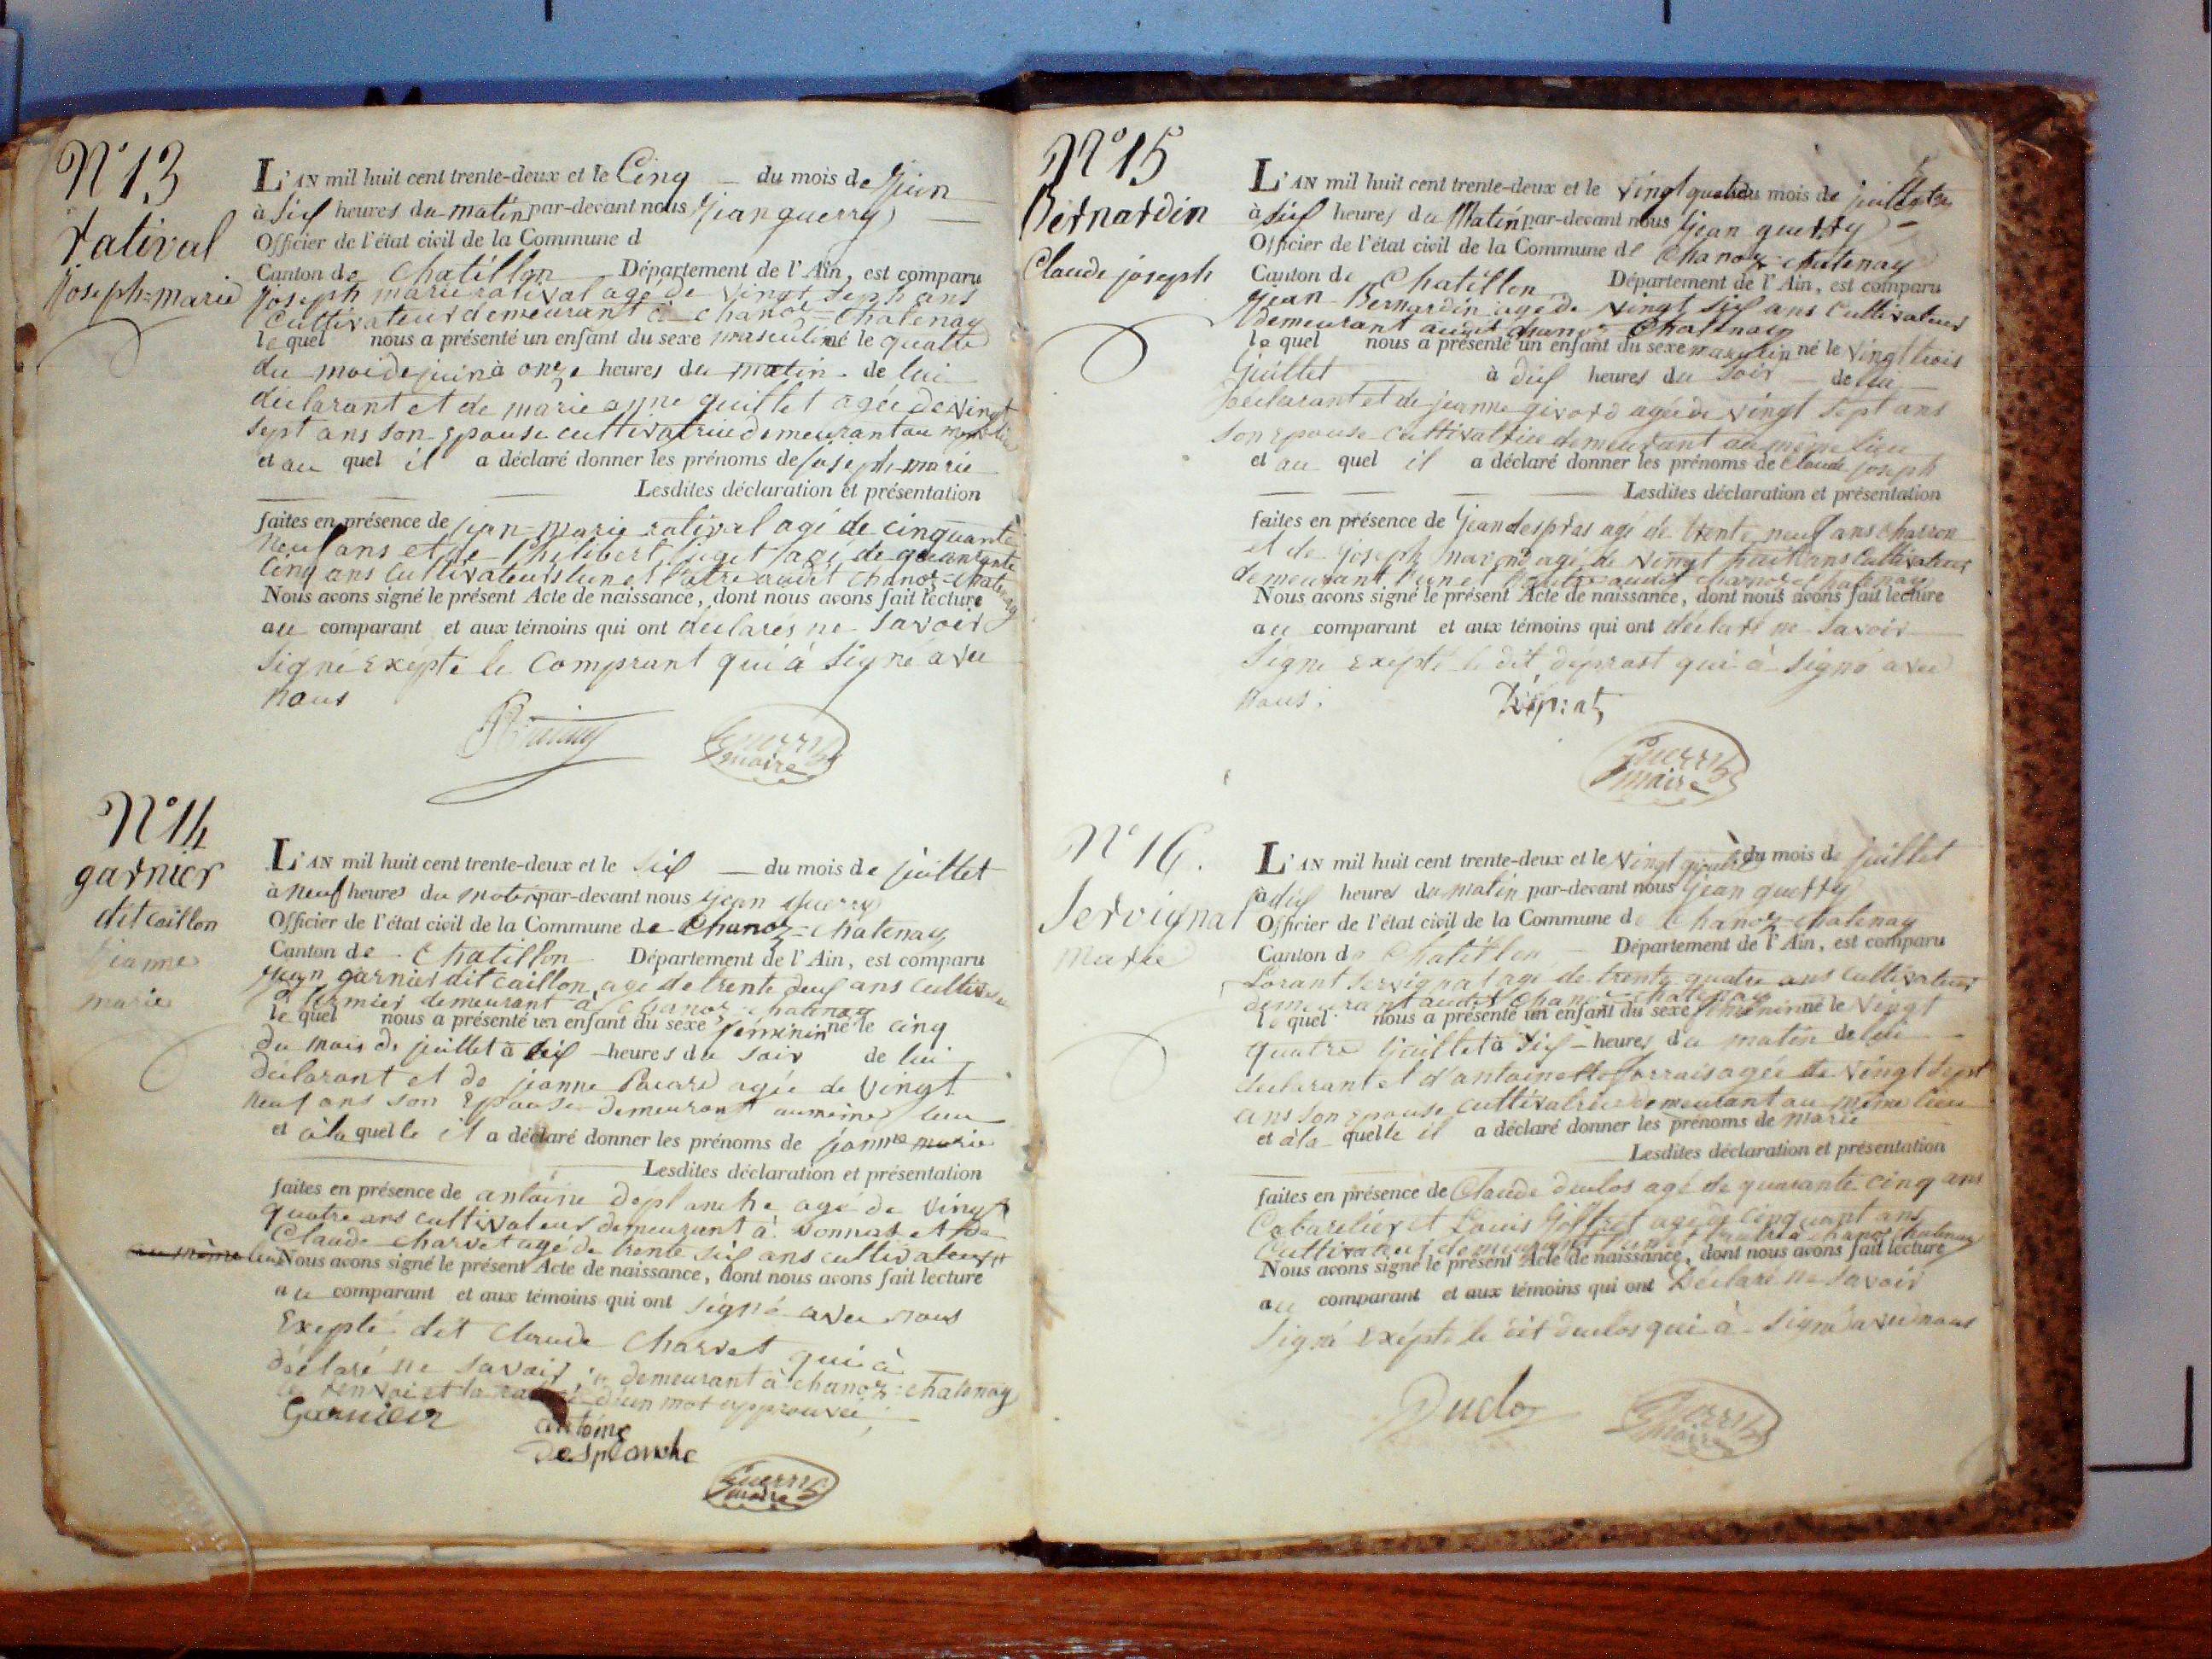 N° 13
ratival
Joseph=marie
L'AN mil huit cent trente-deux et le Cinq du mois de juin
à Six heures du matin par-devant nous jean guerry
Officier de l'état civil de la Commune d
Canton de Chatillon Département de l'Ain, est comparu
joseph marie ratival agé de vingt seph ans
Cultivateur demeurant à chanoz=chatenay
le quel nous a présenté un enfant du sexe masculin né le quatre
du mois de juin à onze heures du matin de lui
déclarant et de marie anne guillet agée de vingt
sept ans son Epouse cultivatrice demeurant au même lieu
et au quel il a déclaré donner les prénoms de joseph-marie
Lesdites déclaration et présentation
faites en présence de jean-marie ratival agé de cinquante
neuf ans et de Philibert agé de quarante
Cinq ans Cultivateurs l'un et l'autre audit Chanoz=chatenay
Nous avons signé le présent Acte de naissance, dont nous avons fait lecture
au comparant et aux témoins qui ont déclarés ne Savoir
Signé Exépte le Comprant qui à Signe avec
nous
Guerry
maire
N° 14
garnier
dit caillon
jeanne
marie
L'AN mil huit cent trente-deux et le Six du mois de juillet
à neuf heures du matin par-devant nous jean guerry
Officier de l'état civil de la Commune de Chanoz=chatenay
Canton de Chatillon Département de l'Ain, est comparu
jean garnier dit caillon, age de trente deux ans cultivateur
fermier demeurant à chanoz=chatenay
le quel nous a présenté un enfant du sexe feminin né le cinq
du mois de juillet à six heures du soir de lui
déclarant et de jeanne Pacard agée de vingt
neuf ans son Epouse demeurant au même lieu
et à la quelle il a déclaré donner les prénoms de jeanne marie
Lesdites déclaration et présentation
faites en présence de antoine deplanche agé de vingt
quatre ans cultivateur demeurant à vonnas et de
Claude charvet agé de trente six ans cultivateur
au même lieu Nous avons signé le présent Acte de naissance, dont nous avons fait lecture
au comparant et aux témoins qui ont signé avec nous
Exepté dit Claude Charvet qui à
déclaré ne savoir, demeurant à chanoz=chatenay
le renvoi et la d'un mot approuvée
Garnier
antoine
Desplanche
Guerry
maire
N° 15
Bernardin
Claude joseph
L'AN mil huit cent trente-deux et le vingt quatre du mois de juillet
à Six heures du Matin par-devant nous jean guerry
Officier de l'état civil de la Commune de Chanoz-chatenay
Canton de Chatillon Département de l'Ain, est comparu
jean Bernardin agé de vingt six ans Cultivateur
demeurant audit chanoz Chatenay
le quel nous a présenté un enfant du sexe masculin né le vingt trois
juillet à dix heures du soir de lui
déclarant et de jeanne givord agée de vingt sept ans
son Epouse Cultivatrice demeurant au même lieu
et au quel il a déclaré donner les prénoms de Claude joseph
Lesdites déclaration et présentation
faites en présence de jean despras agé de trente neuf ans charron
et de joseph agé de vingt huit ans Cultivateur
demeurant l'un et l'autre audit chanoz chatenay
Nous avons signé le présent Acte de naissance, dont nous avons fait lecture
au comparant et aux témoins qui ont déclaré ne Savoir
Signe Exépté le dit déprast qui à Signé avec
nous.
Déprat
Guerry
maire
N° 16.
Servignat
Marie
L'AN mil huit cent trente-deux et le vingt quatre du mois de juillet
à dix heures du matin par-devant nous jean guerry
Officier de l'état civil de la Commune de Chanoz=chatenay
Canton de Chatillon Département de l'Ain, est comparu
Lorant Servignat age de trente quatre ans Cultivateur
demeurant audit Chanoz chatenay
le quel nous a présenté un enfant du sexe féminin né le vingt
quatre juillet à Six heures du matin de lui
declarant et d'antoinette Jorrais agée de vingt sept
ans son Epouse cultivatrice demeurant au même lieu
et à la quelle il a déclaré donner les prénoms de marie
Lesdites déclaration et présentation
faites en présence de Claude duclos agé de quarante cinq ans
Cabaretier et Louis agé de cinquant ans
Cultivateur demeurant l'un et l'autre à chanoz chatenay
Nous avons signé le présent Acte de naissance, dont nous avons fait lecture
au comparant et aux témoins qui ont Déclaré ne Savoir
Signé Exépte le dit duclos qui à Signé avec nous
Duclos
Guerry
maire